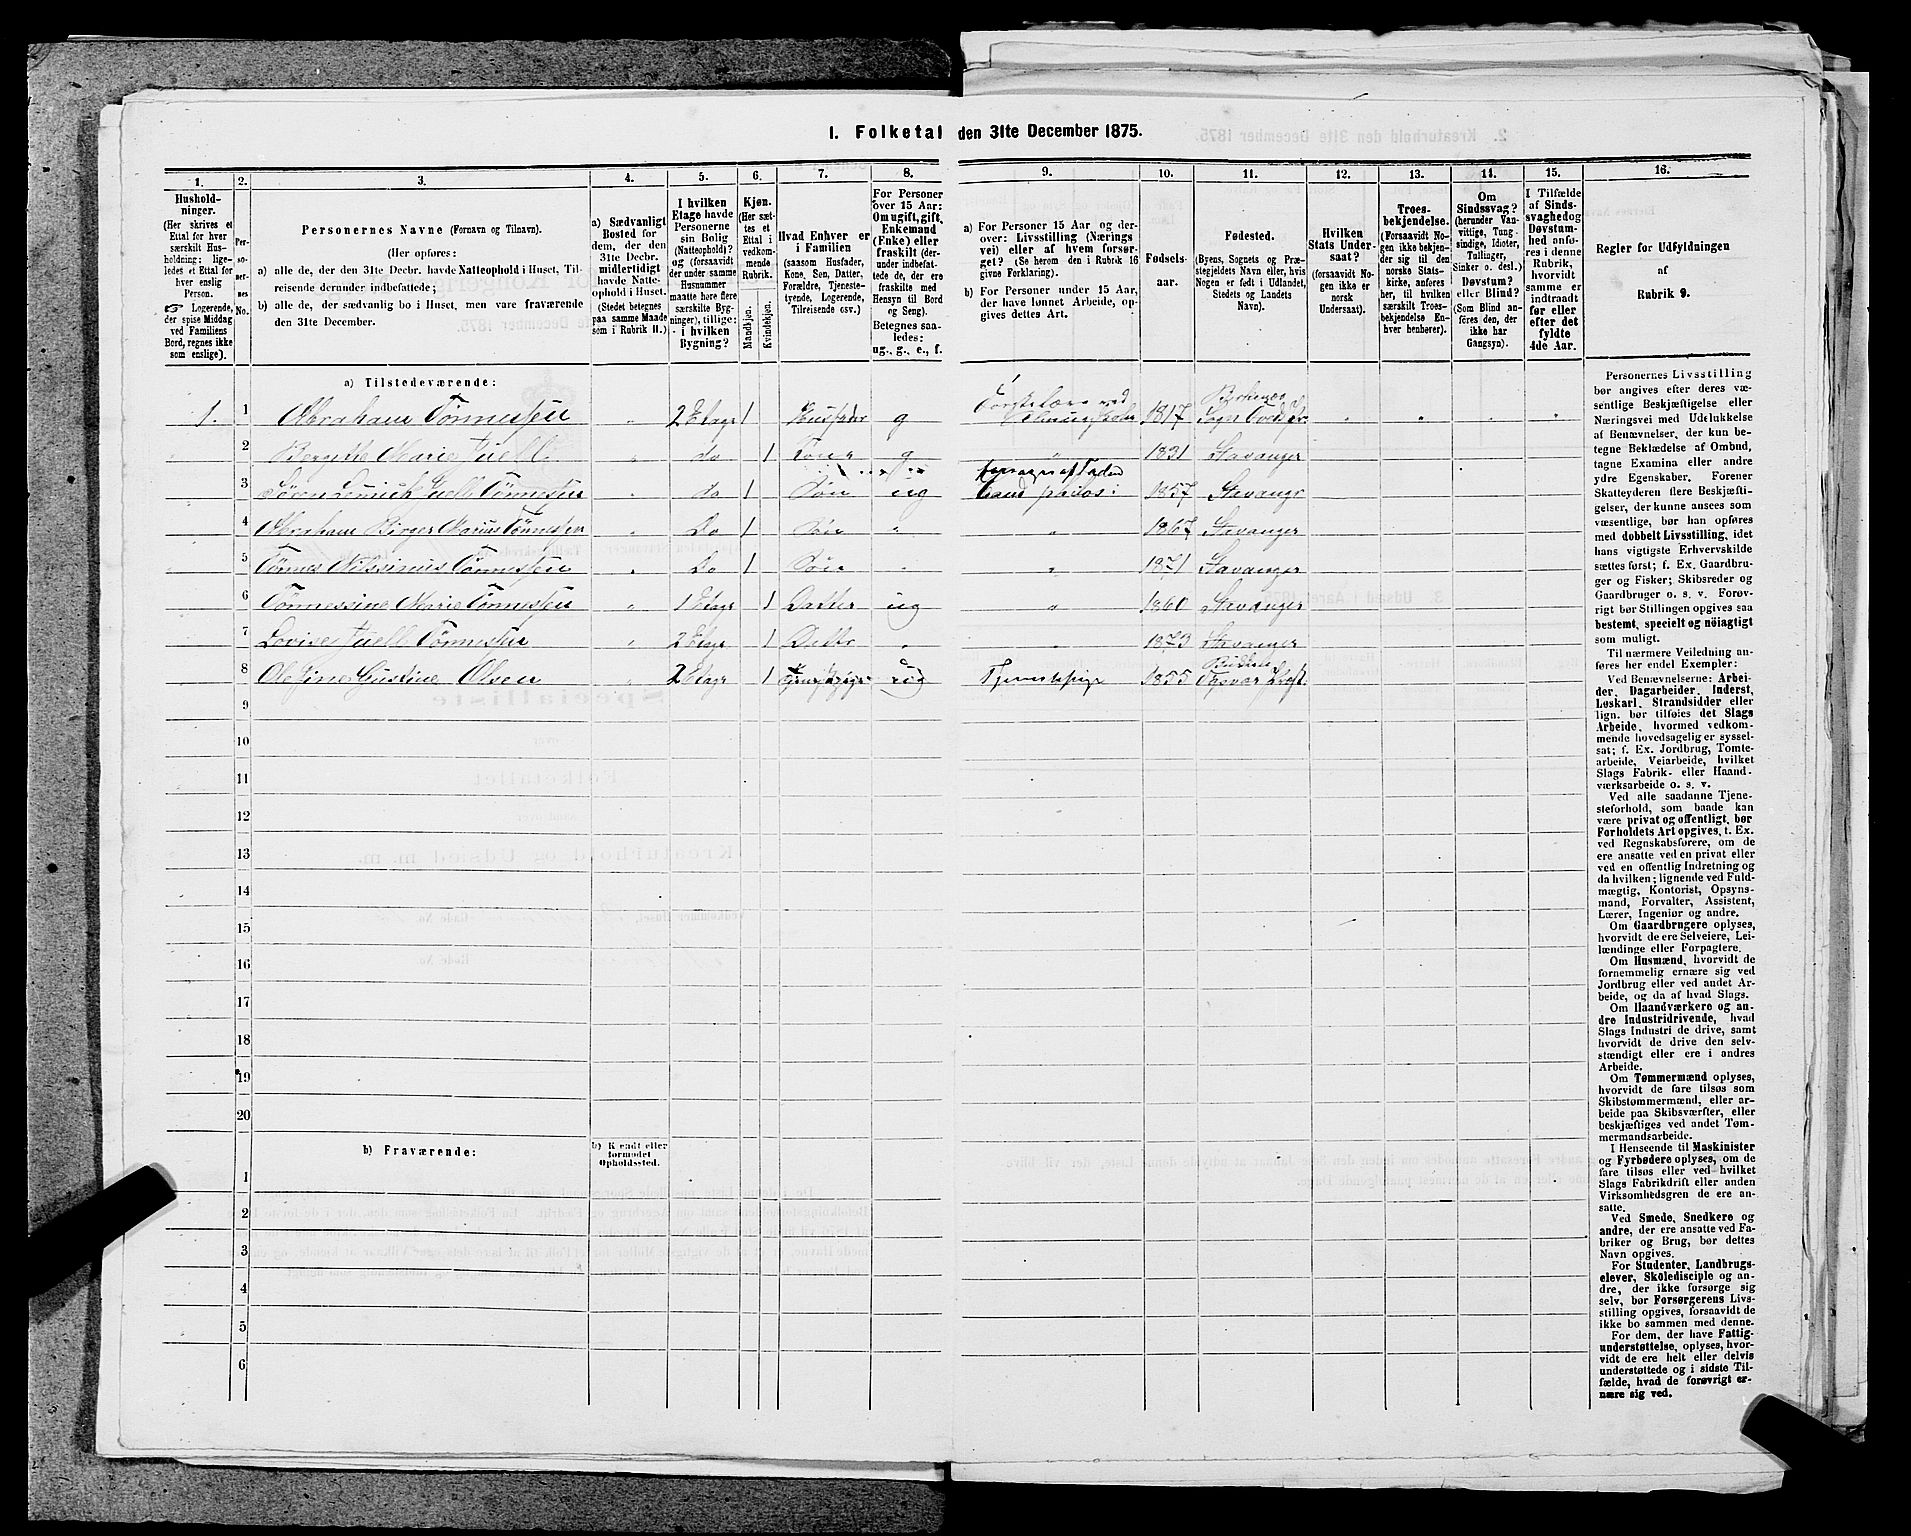 1. Folketal den 31te December 1875.
1.
Husholdninger.
(Her skrives et
Ettal for hver
særskilt Husholdning; ligeledes et Ettal for
hver enslig
Person.
Logerende,
der spise Middag
ved Familiens
Bord, regnes ikke
som enslige).
2.
Personernes
No.
3.
Personernes Navne (Fornavn og Tilnavn).
(Her opføres:
a) alle de, der den 31te Decbr. havde Natteophold i Huset, Tilreisende derunder indbefattede;
b) alle de, der sædvanlig bo i Huset, men vare fraværende
den 31te December.
4.
a) Sædvanligt
Bosted for
dem, der den
31te Decbr.
midlertidigt
havde Natteophold i Huset.
(Stedet betegnes
paa samme Maade
som i Rubrik 11.)
5.
I hvilken
Etage havde
Personerne
sin Bolig
(Natteophold)?
og (forsaavidt
der under samme
Husnummer
maatte høre flere
særskilte Bygninger), tillige:
i hvilken
Bygning?
6.
Kjøn.
(Her sættes et
Ettal i
vedkommende
Rubrik.
Mandkjøn.
Kvindekjøn.
7.
Hvad Enhver er
i Familien
(saasom Husfader,
Kone, Søn, Datter,
Forældre, Tjenestetyende, Logerende,
Tilreisende osv.)
8.
For Personer
over 15 Aar:
Om ugift, gift,
Enkemand
(Enke) eller
fraskilt (derunder indbefattede de, der ere
fraskilte med
Hensyn til Bord
og Seng).
Betegnes saaledes:
ug., g., e., f.
9.
a) For Personer 15 Aar og derover: Livsstilling (Næringsvei) eller af hvem forsørget? (Se herom den i Rubrik 16
givne Forklaring).
b) For Personer under 15 Aar,
der have lønnet Arbeide, opgives dettes Art.
10.
Fødselsaar.
11.
Fødested.
(Byens, Sognets og Præstegjeldets Navn eller, hvis
Nogen er født i Udlandet,
Stedets og Landets
Navn).
12.
Hvilken
Stats Undersaat?
(forsaavidt Nogen ikke er
norsk
Undersaat).
13.
Troesbekjendelse.
(Forsaavidt Nogen ikke bekjender sig til den
norske Statskirke, anføres
her, til hvilken
særskilt Troesbekjendelse Enhver henhører).
14.
Om
Sindssvag?
(herunder Vanvittige, Tungsindige, Idioter,
Tullinger,
Sinker o. desl.)
Døvstum?
eller Blind?
(Som Blind anføres den, der
ikke har
Gangsyn).
15.
I Tilfælde
af Sindssvaghed og
Døvstumhed anføres i denne
Rubrik,
hvorvidt
samme er
indtraadt
før eller
efter det
fyldte
4de Aar.
16.
Regler for Udfyldningen
af
Rubrik 9.
a) Tilstedeværende:
1. 1 Abraham Tønnessen 2 Etage 1 Husfader g 1817
2 Bergithe Marie Juell do 1 Kone g 1831 Stavanger
3 Søren Juell Tønnessen do 1 Søn ug philos: 1857 Stavanger
4 Abraham Birger Marius Tønnessen Do 1 Søn 1867 Stavanger
5 Tønnes Nilssinius Tønnessen Do 1 Søn 1871 Stavanger
6 Tønnessine Marie Tønnessen 1 Etage 1 Datter ug 1860 Stavanger
7 Lovise Juell Tønnessen 2 Etage 1 Datter 1873 Stavanger
8 Olefine Gustine Olsen 2 Etage 1 Tjenestepige ug Tjenestepige 1855
9
10
11
12
13
14
15
16
17
18
19
20
b) Fraværende:
b) Kjendt eller
formodet
Opholdssted.
1
2
3
4
5
6
Personernes Livsstilling
bør angives efter deres væsentlige Beskjæftigelse eller
Næringsvei med Udelukkelse
af Benævnelser, der kun betegne Beklædelse af Ombud,
tagne Examina eller andre
ydre Egenskaber. Forener
Skatteyderen flere Beskjæftigelser, der kunne ansees som
væsentlige, bør han opføres
med dobbelt Livsstilling, idet
hans vigtigste Erhvervskilde
sættes først; f. Ex. Gaardbruger og Fisker; Skibsreder og
Gaardbruger o. s. v. Forøvrigt bør Stillingen opgives saa
bestemt, specielt og nöiagtigt
som muligt.
Til nærmere Veiledning anføres her endel Exempler:
Ved Benævnelserne: Arbeider, Dagarbeider, Inderst,
Løskarl, Strandsidder eller
lign. bør tilføies det Slags
Arbeide, hvormed vedkommende hovedsagelig er sysselsat; f. Ex. Jordbrug, Tomtearbeide, Veiarbeide, hvilket
Slags Fabrik- eller Haandværksarbeide o. s. v.
Ved alle saadanne Tjenesteforhold, som baade kan
være privat og offentligt, bør
Forholdets Art opgives, t. Ex.
ved Regnskabsførere, om de
ere ansatte ved en privat eller
ved en offentlig Indretning og
da hvilken; lignende ved Fuldmægtig, Kontorist, Opsynsmand, Forvalter, Assistent,
Lærer, Ingeniør og andre.
Om Gaardbrugere oplyses,
hvorvidt de ere Selveiere, Leilændinge eller Forpagtere.
Om Husmænd, hvorvidt de
fornemmelig ernære sig ved
Jordbrug eller ved andet Arbeide, og da af hvad Slags.
Om Haandværkere og andre Industridrivende, hvad
Slags Industri de drive, samt
hvorvidt de drive den selvstændigt eller ere i andres
Arbeide.
Om Tømmermænd oplyses,
hvorvidt de fare tilsøs som
Skibstømmermænd, eller arbeide paa Skibsværfter, eller
beskjæftiges ved andet Tømmermandsarbeide.
I Henseende til Maskinister
og Fyrbødere oplyses, om de
fare tilsøs eller ved hvilket
Slags Fabrikdrift eller anden
Virksomhedsgren de ere ansatte.
Ved Smede, Snedkere og
andre, der ere ansatte ved Fabriker og Brug, bør dettes
Navn opgives.
For Studenter, Landbrugselever, Skoledisciple og andre, der ikke forsørge sig
selv, bør Forsørgerens Livsstilling opgives, forsaavidt de
ikke bo sammen med denne.
For dem, der have Fattigunderstøttelse, oplyses, hvorvidt de ere helt eller delvis
understøttede og i sidste Tilfælde, hvad de forøvrigt ernære sig ved.